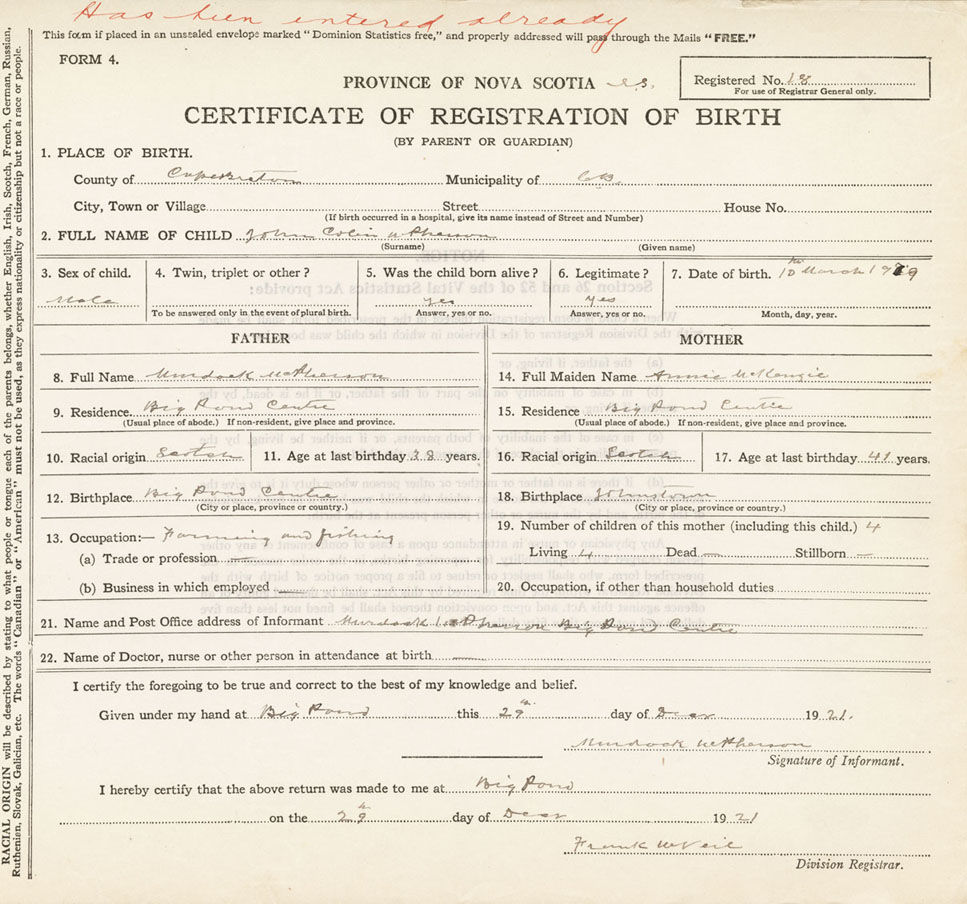 Has been entered already
This form if placed in an unsealed envelope marked "Dominion Statistics free," and properly addressed will pass through the Mails "FREE."
FORM 4.
PROVINCE OF NOVA SCOTIA
Registered No. 18
For use of Registrar General only.
CERTIFICATE OF REGISTRATION OF BIRTH
(BY PARENT OR GUARDIAN)
1. PLACE OF BIRTH.
County of Cape Breton Municipality of C.B.
City, Town or Village Street House No.
(If birth occurred in a hospital, give its name instead of Street and Number)
2. FULL NAME OF CHILD John Colin McPherson
(Surname) (Given name)
3. Sex of child. 4. Twin, triplet or other? 5. Was the child born alive? 6. Legitimate? 7. Date of birth. 10th March 1919
Male yes yes
To be answered only in the event of plural birth. Answer, yes or no. Answer, yes or no. Month, day, year.
FATHER MOTHER
8. Full Name Murdock McPherson 14. Full Maiden Name Annie McKenzie
9. Residence Big Pond Centre 15. Residence Big Pond Centre
(Usual place of abode.) If non-resident, give place and province. (Usual place of abode.) If non-resident, give place and province.
10. Racial origin Scotch 11. Age at last birthday 38 years. 16. Racial origin Scotch 17. Age at last birthday 41 years.
12. Birthplace Big Pond Centre 18. Birthplace Johnstown
(City or place, province or country.) (City or place, province or country.)
13. Occupation:— Farming and fishing 19. Number of children of this mother (including this child.) 4
(a) Trade or profession — Living 4 Dead — Stillborn —
(b) Business in which employed — 20. Occupation, if other than household duties
21. Name and Post Office address of Informant Murdock McPherson Big Pond Centre
22. Name of Doctor, nurse or other person in attendance at birth —
I certify the foregoing to be true and correct to the best of my knowledge and belief.
Given under my hand at Big Pond this 29th day of Decr 1921.
Murdock McPherson
Signature of Informant.
I hereby certify that the above return was made to me at Big Pond
on the 29th day of Decr 1921
Frank McNeil
Division Registrar.
RACIAL ORIGIN will be described by stating to what people or tongue each of the parents belongs, whether English, Irish, Scotch, French, German, Russian,
Ruthenian, Slovak, Galician, etc. The words "Canadian" or "American" must not be used, as they express nationality or citizenship but not a race or people.